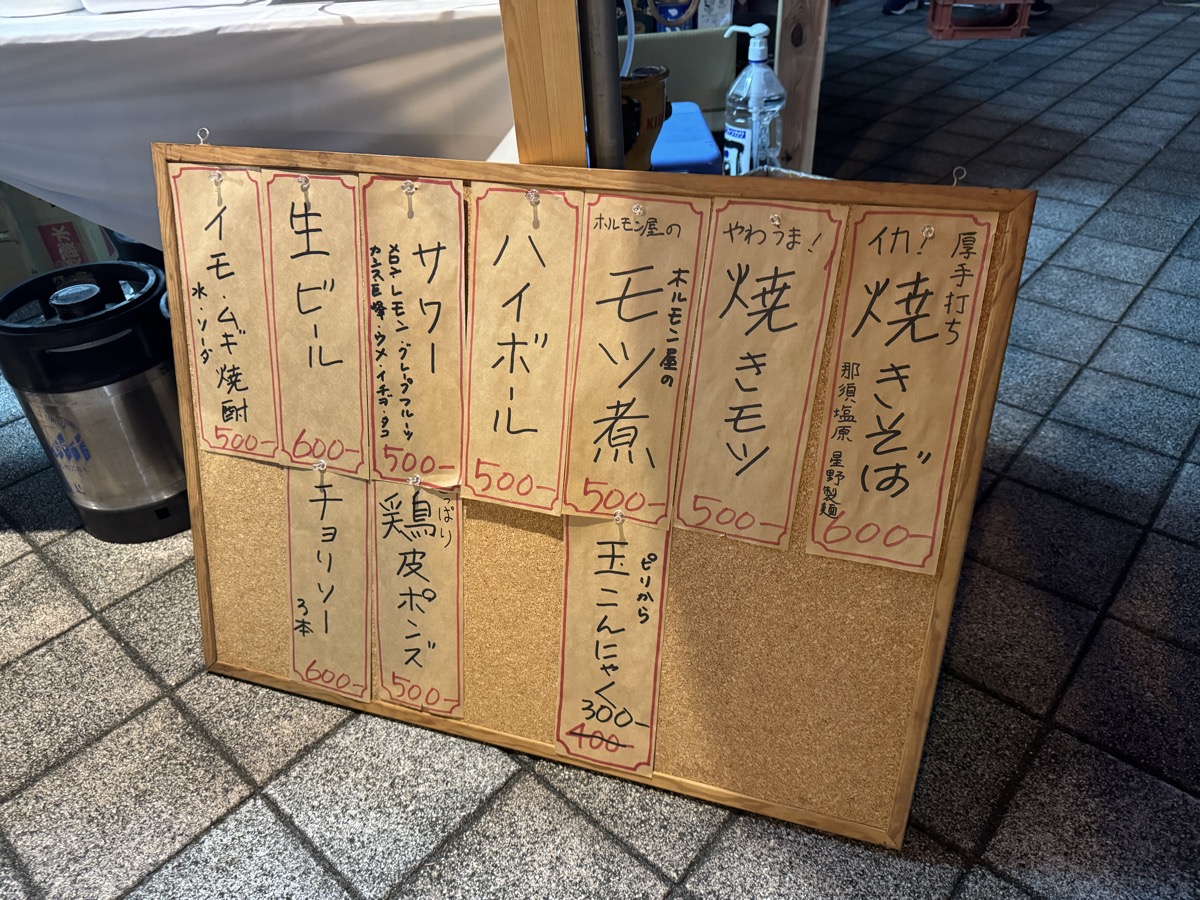 厚手打ち
イカ!
焼きそば
那須塩原 星野製麺
600-
やわうま!
焼きモツ
500-
ホルモン屋の
ホルモン屋の
モツ煮
500-
ハイボール
500-
サワー
レモン・グレープフルーツ
巨峰・ウメ・イチゴ・タコ
500-
生ビール
600-
イモ・ムギ焼酎
水・ソーダ
500-
ピリから
玉こんにゃく
300-
400-
っぱり
鶏皮ポンズ
500-
チョリソー
3本
600-